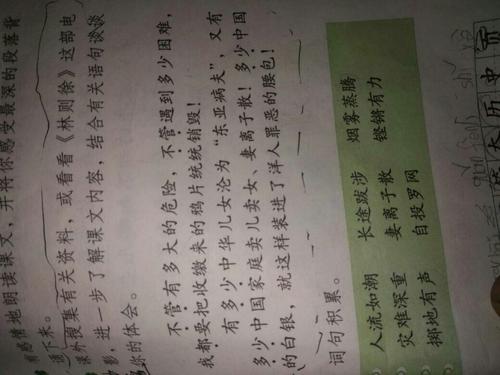 有感情地朗读课文，并将你感受最深的段落背
诵下来。
课外搜集有关资料，或看看《林则徐》这部电
影，进一步了解课文内容，结合有关语句谈谈
你的体会。
不管有多大的危险，不管遇到多少困难，
我都要把收缴来的鸦片统统销毁！
有多少中华儿女沦为“东亚病夫”，又有
多少中国家庭卖儿卖女、妻离子散！多少中国
的白银，就这样装进了洋人罪恶的腰包！
词句积累。
人流如潮 长途跋涉 烟雾蒸腾
灾难深重 妻离子散 铿锵有力
掷地有声 自投罗网